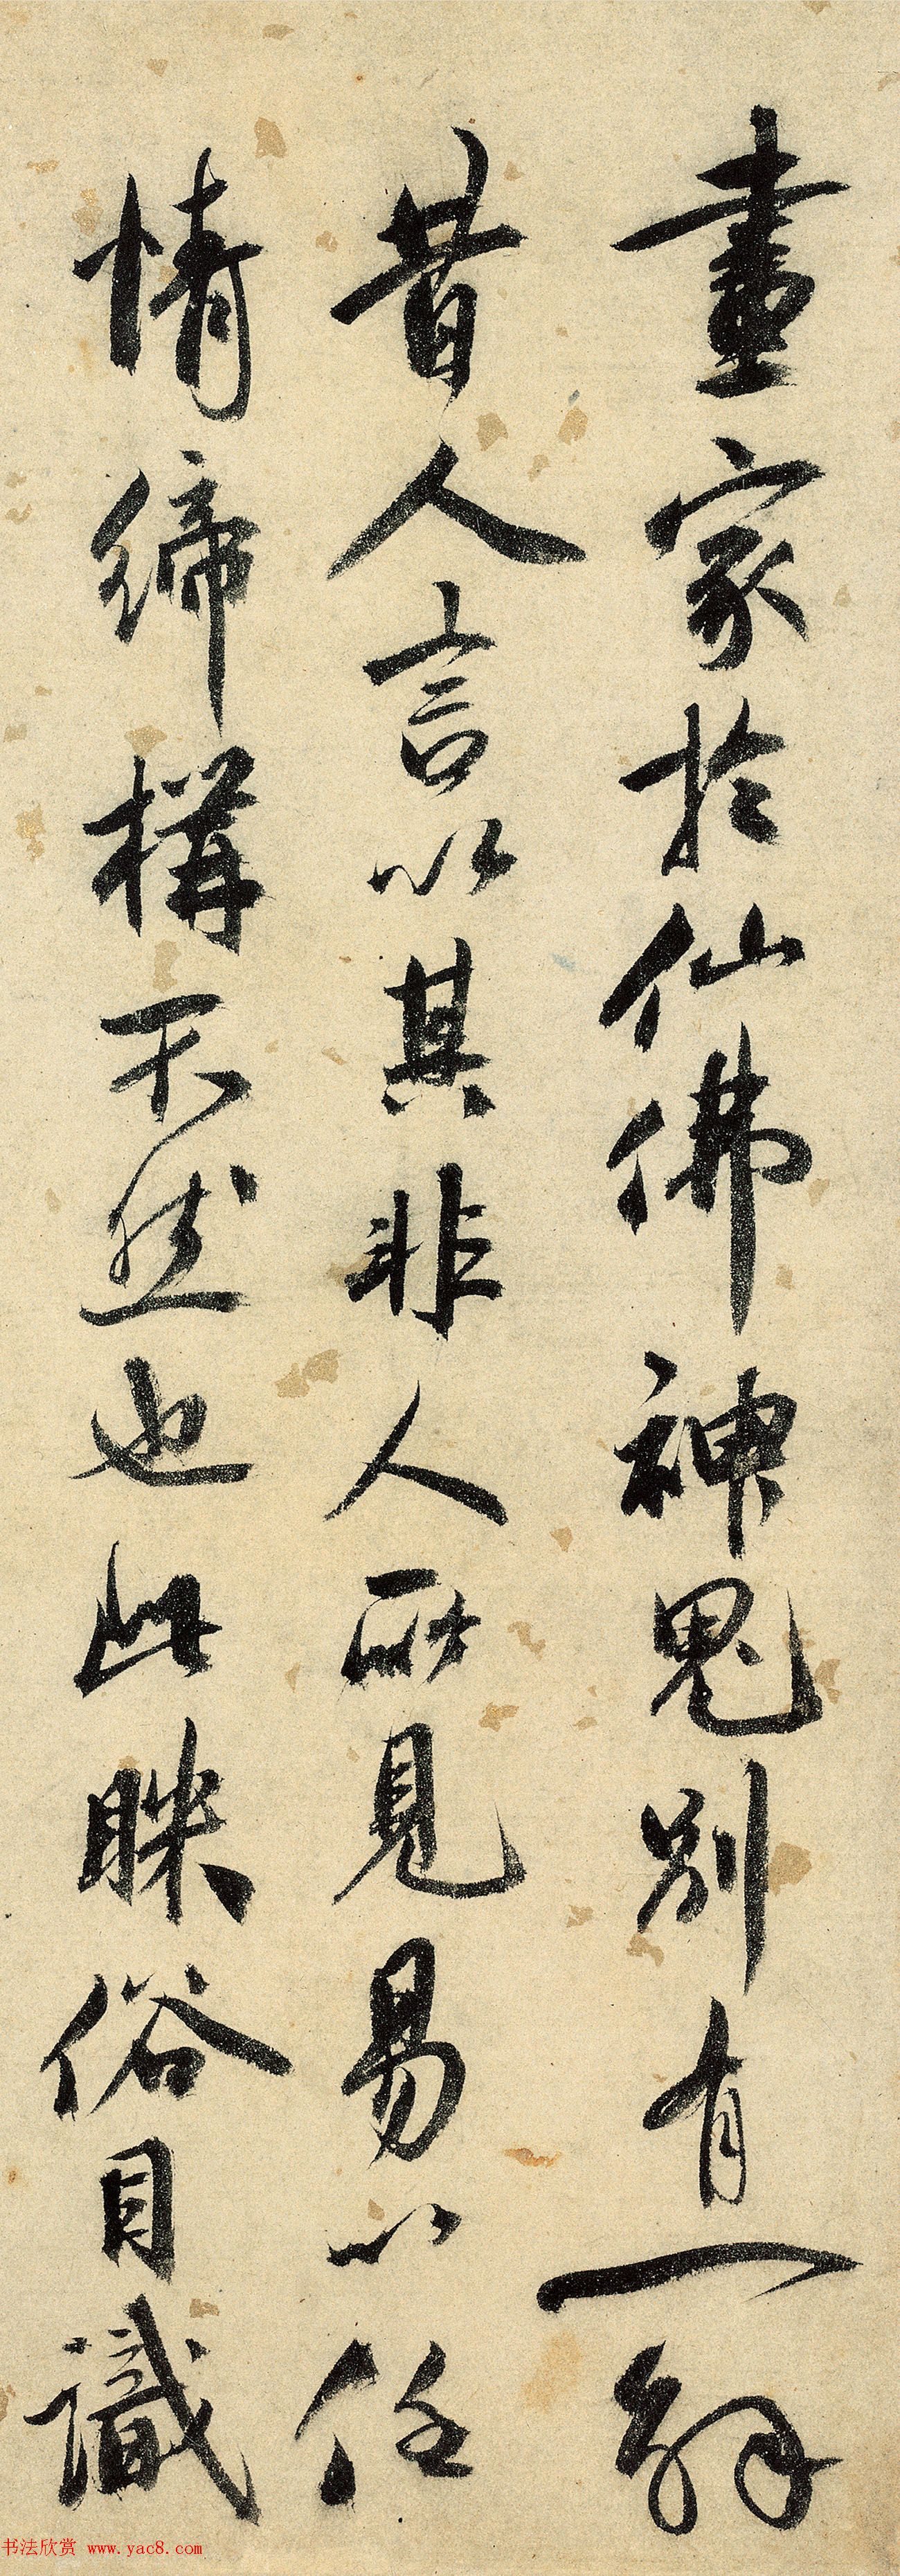 畫家於仙佛神鬼別有一解
昔人言以其非人所見易以任
情締構不然也此眯俗目識
书法欣赏 www.yac8.com